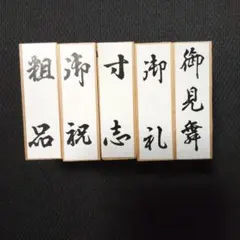 御見舞
御礼
寸志
御祝
粗品